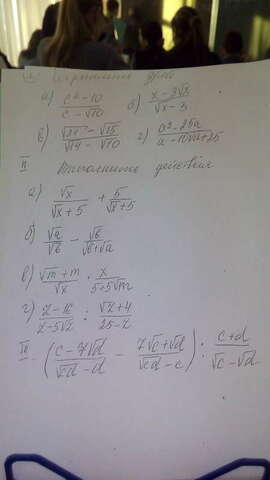 Сократите дробь
а) (c² - 10)/(c - √10) б) (x - 3√x)/(√x - 3)
в) (√21 - √15)/(√14 - √10) г) (a² - 25a)/(a - 10√a + 25)
II Выполните действия
а) √x/(√x + 5) + 5/(√x + 5)
б) √a/√b - √b/(√b + √a)
в) (√m + m)/√x · x/(5 + 5√m)
г) (z - 16)/(z - 5√z) : (√z + 4)/(25 - z)
III - ((c - 7√d)/(√cd - d) - (7√c + √d)/(√cd - c)) : (c + d)/(√c - √d)